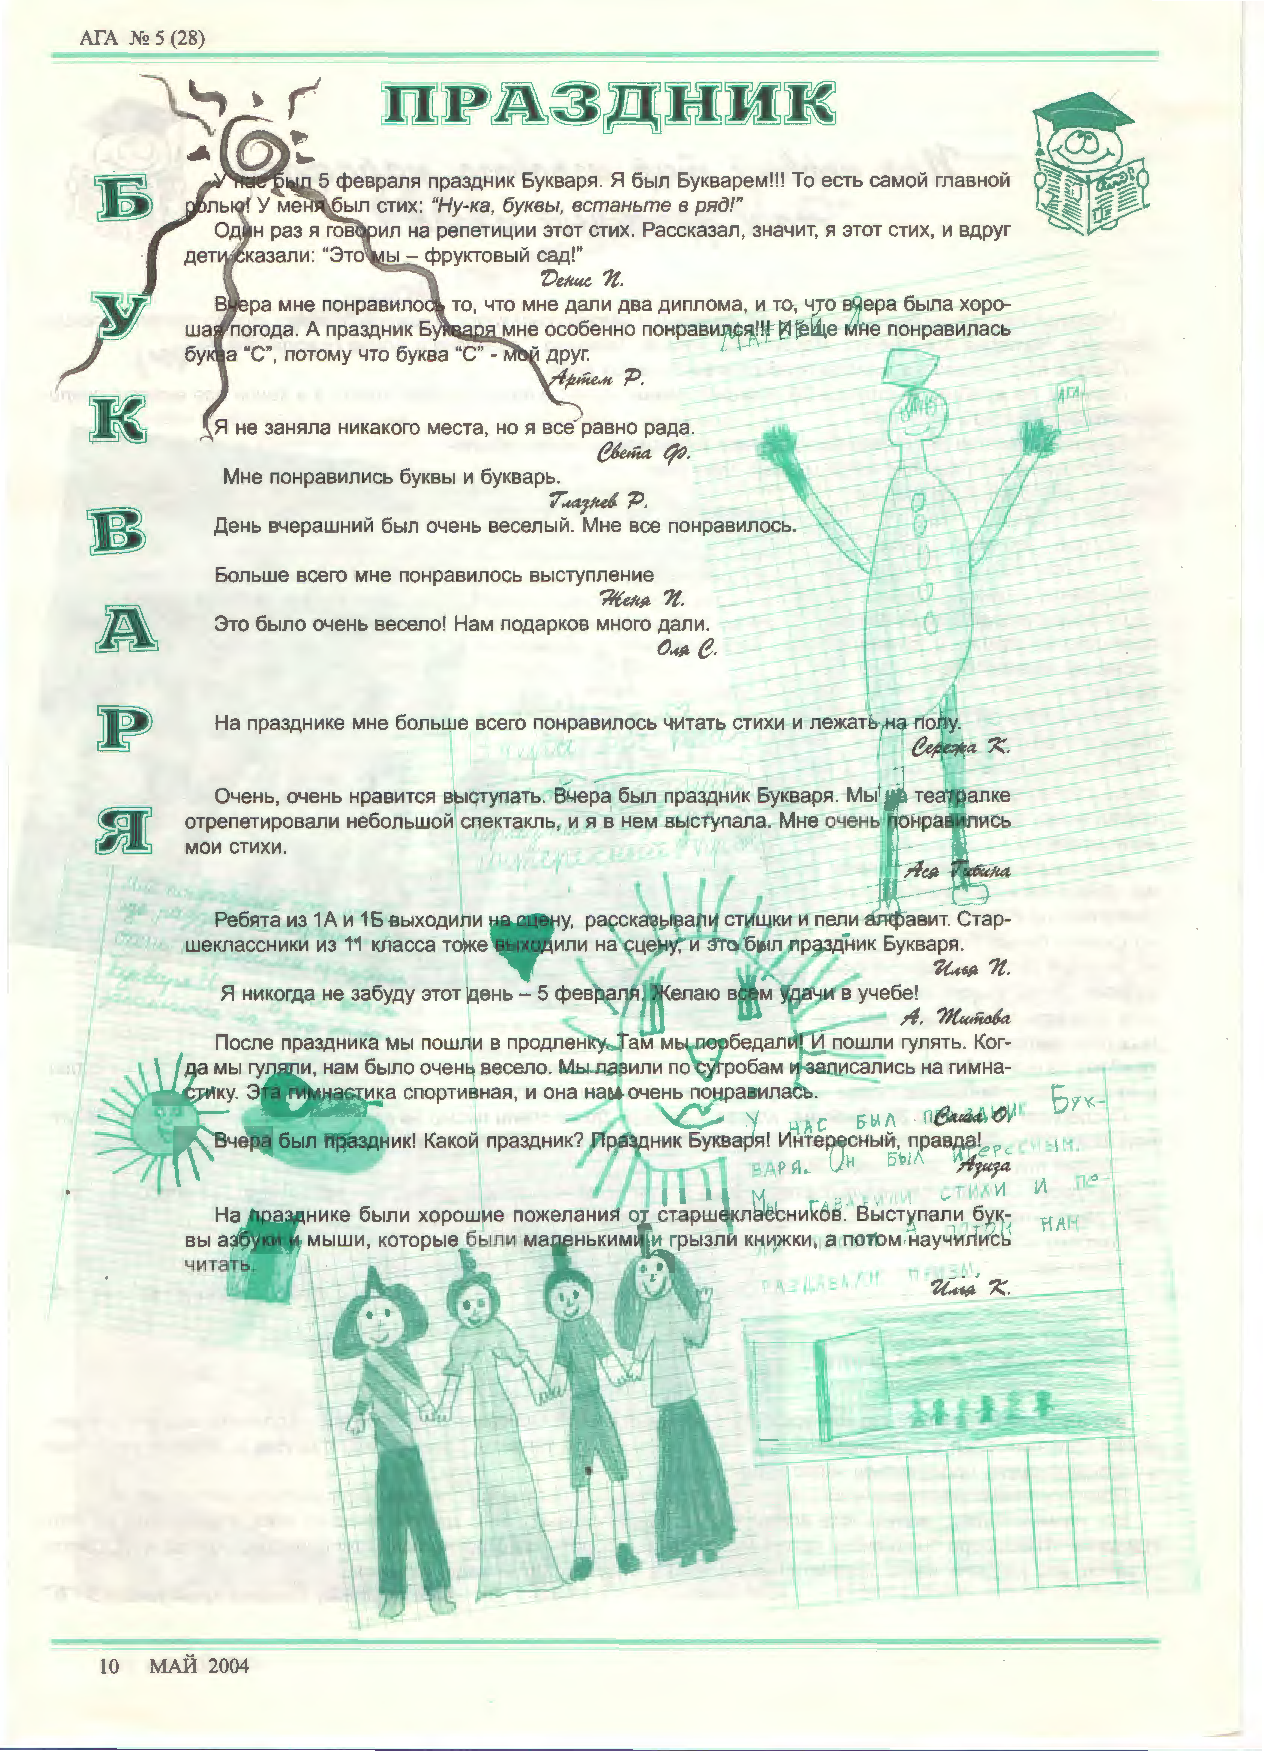 АГА № 5 (28)
ПРАЗДНИК
БУКВАРЯ
У нас был 5 февраля праздник Букваря. Я был Букварем!!! То есть самой главной
ролью! У меня был стих: "Ну-ка, буквы, встаньте в ряд!"
Один раз я говорил на репетиции этот стих. Рассказал, значит, я этот стих, и вдруг
дети сказали: "Это мы – фруктовый сад!"
Денис И.
Вчера мне понравилось то, что мне дали два диплома, и то, что вчера была хоро-
шая погода. А праздник Букваря мне особенно понравился!!! И еще мне понравилась
буква "С", потому что буква "С" - мой друг.
Артем Р.
Я не заняла никакого места, но я все равно рада.
Света Ф.
Мне понравились буквы и букварь.
Глазнев Р.
День вчерашний был очень веселый. Мне все понравилось.
Больше всего мне понравилось выступление
Женя И.
Это было очень весело! Нам подарков много дали.
Оля С.
На празднике мне больше всего понравилось читать стихи и лежать на полу.
Сережа К.
Очень, очень нравится выступать. Вчера был праздник Букваря. Мы на театралке
отрепетировали небольшой спектакль, и я в нем выступала. Мне очень понравились
мои стихи.
Ася
Ребята из 1А и 1Б выходили на сцену, рассказывали стишки и пели алфавит. Стар-
шеклассники из 11 класса тоже выходили на сцену, и это был праздник Букваря.
Илья И.
Я никогда не забуду этот день – 5 февраля. Желаю всем удачи в учебе!
А. Титова
После праздника мы пошли в продленку. Там мы пообедали! И пошли гулять. Ког-
да мы гуляли, нам было очень весело. Мы лазили по сугробам и записались на гимна-
стику. Эта гимнастика спортивная, и она нам очень понравилась.
Саша О.
Вчера был праздник! Какой праздник? Праздник Букваря! Интересный, правда!
Азиза
На празднике были хорошие пожелания от старшеклассников. Выступали бук-
вы азбуки и мыши, которые были маленькими и грызли книжки, а потом научились
читать.
Илья К.
МАТВЕЙ Л
АГА
У НАС БЫЛ ПРАЗДНИК БУК-
ВАРЯ. ОН БЫЛ
МЫ СТИХИ И ПО-
НАМ
РАЗДАВАЛИ ПРИЗЫ.
10 МАЙ 2004